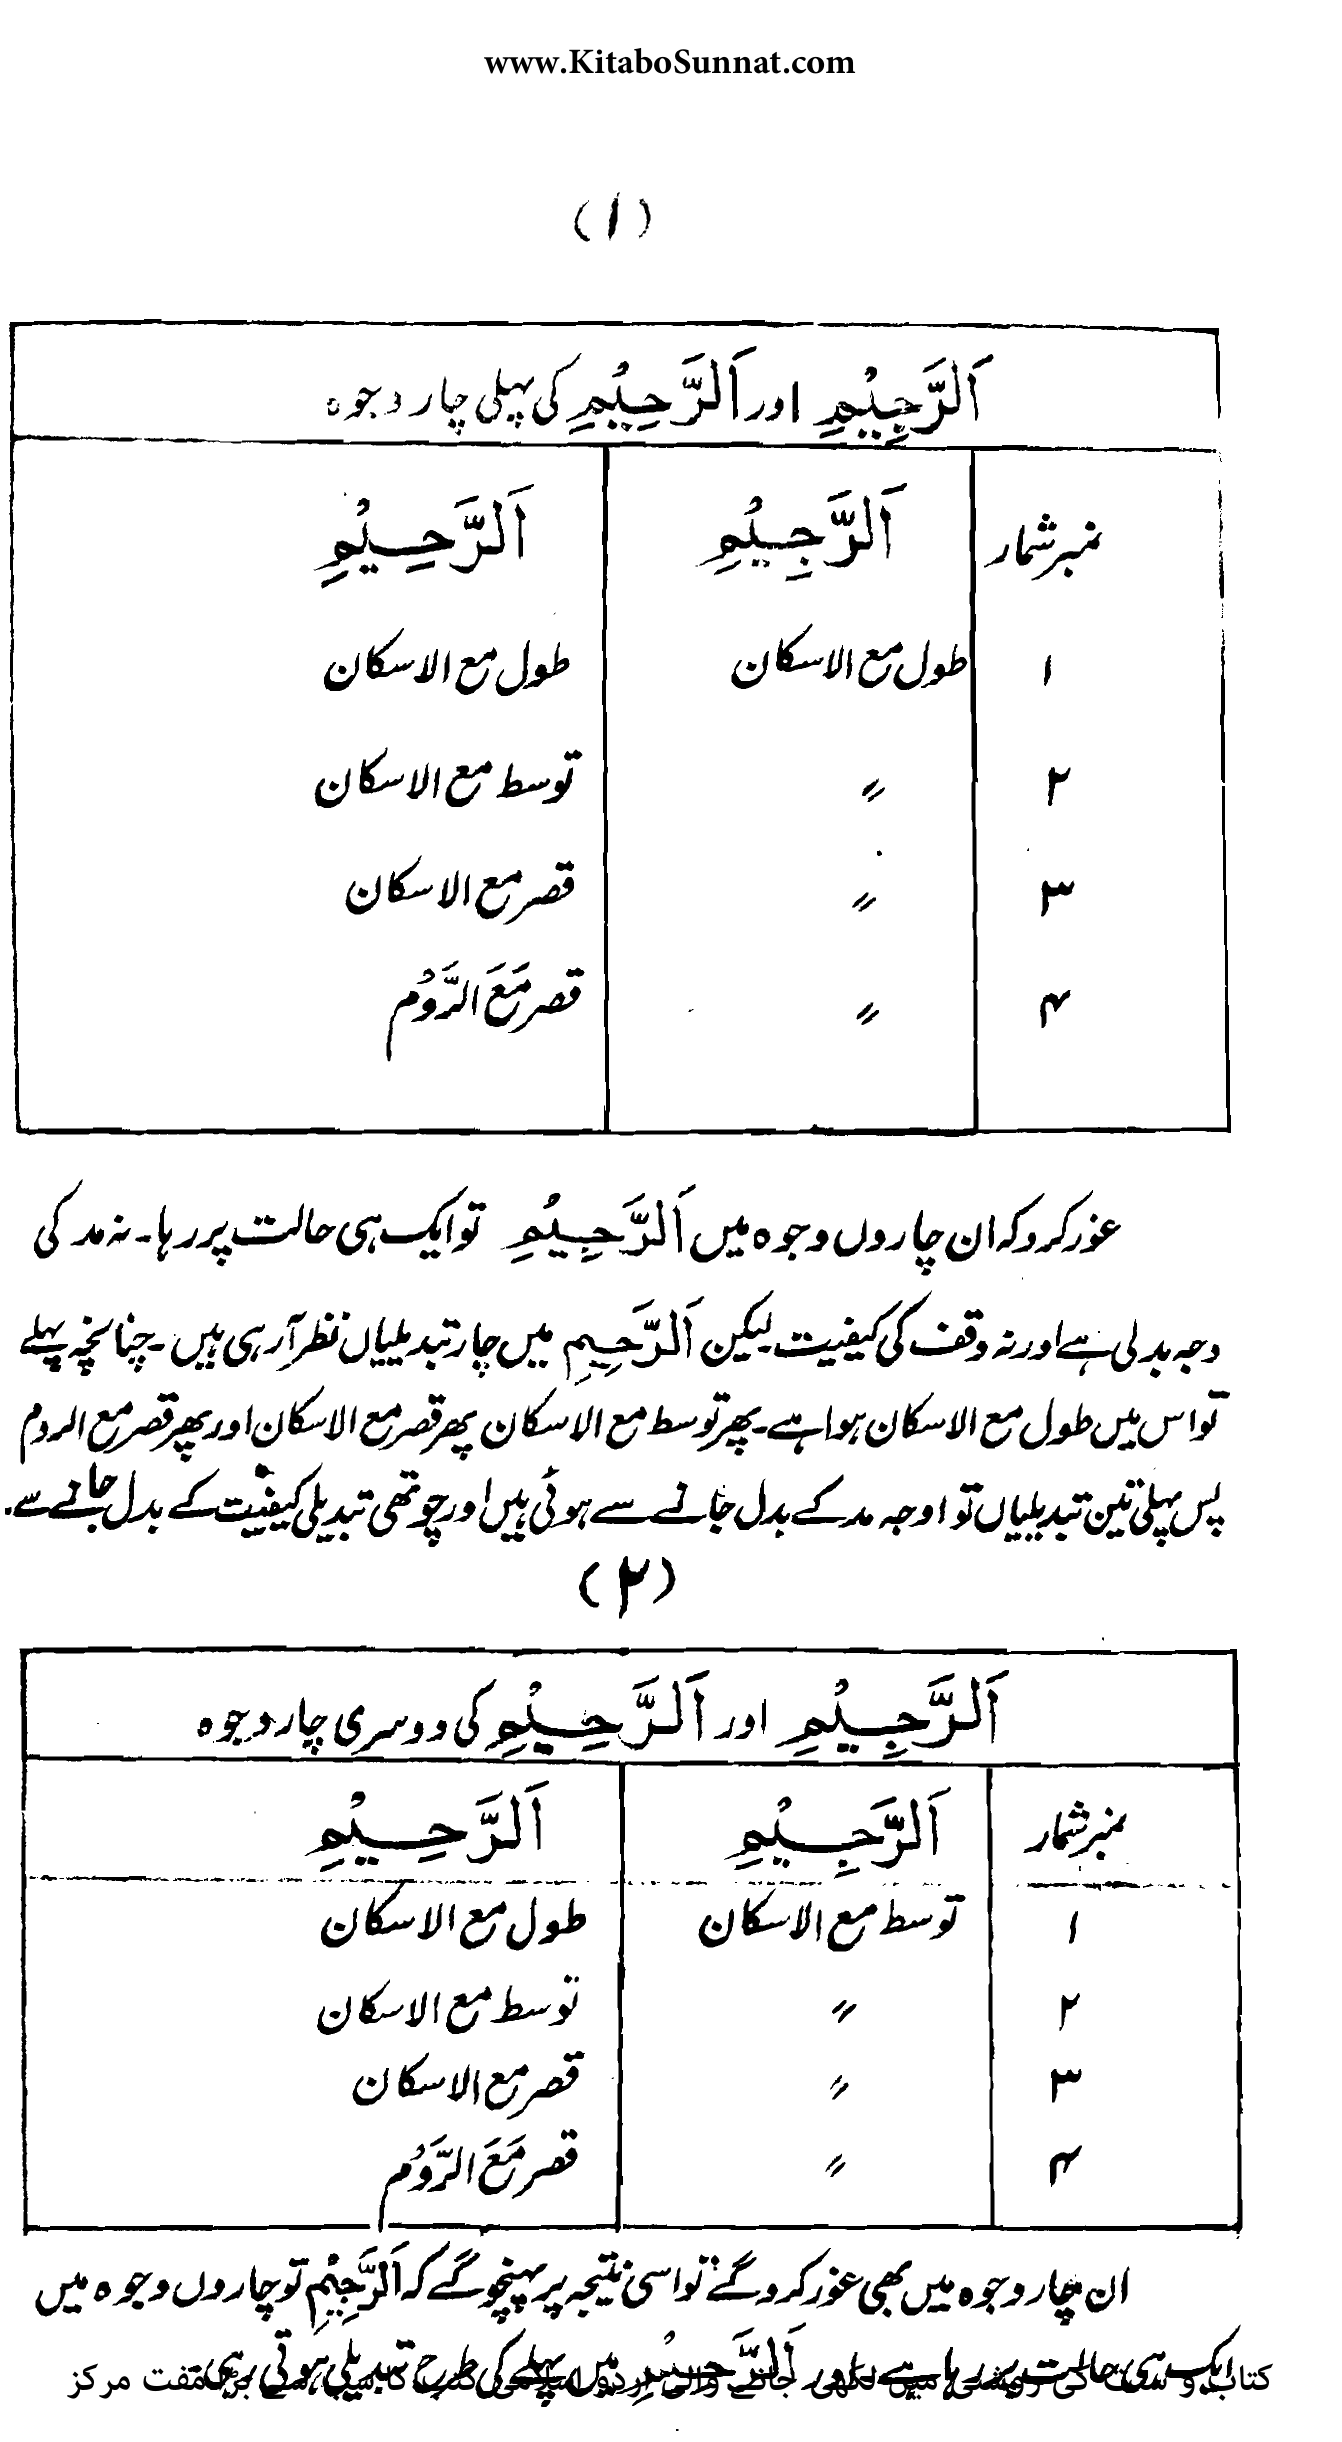 www.KitaboSunnat.com
(۱)
اَلرَّجِيْمِ اور اَلرَّحِيْمِ کی پہلی چار وجوہ
نمبر شمار اَلرَّجِيْمِ اَلرَّحِيْمِ
۱ طول مع الاسکان طول مع الاسکان
۲ 〃 توسط مع الاسکان
۳ 〃 قصر مع الاسکان
۴ 〃 قصر مَعَ الرَّوْم
غور کرو کہ ان چاروں وجوہ میں اَلرَّجِيْمِ تو ایک ہی حالت پر رہا۔ نہ مد کی
وجہ بدلی ہے اور نہ وقف کی کیفیت۔ لیکن اَلرَّحِيْمِ میں چار تبدیلیاں نظر آ رہی ہیں۔ چنانچہ پہلے
تو اس میں طول مع الاسکان ہوا ہے۔ پھر توسط مع الاسکان پھر قصر مع الاسکان اور پھر قصر مع الروم
پس پہلی تین تبدیلیاں تو اوجہ مد کے بدل جانے سے ہوئی ہیں اور چوتھی تبدیلی کیفیت کے بدل جانے سے۔
(۲)
اَلرَّجِيْمِ اور اَلرَّحِيْمِ کی دوسری چار وجوہ
نمبر شمار اَلرَّجِيْمِ اَلرَّحِيْمِ
۱ توسط مع الاسکان طول مع الاسکان
۲ 〃 توسط مع الاسکان
۳ 〃 قصر مع الاسکان
۴ 〃 قصر مَعَ الرَّوْم
ان چار وجوہ میں بھی غور کرو گے تو اسی نتیجہ پر پہنچو گے کہ اَلرَّجِيْمِ تو چاروں وجوہ میں
ایک ہی حالت پر رہا ہے اور اَلرَّحِيْمِ میں پہلے کی طرح تبدیلی ہوتی رہی
کتاب و سنت کی روشنی میں لکھی جانے والی اردو اسلامی کتب کا سب سے بڑا مفت مرکز